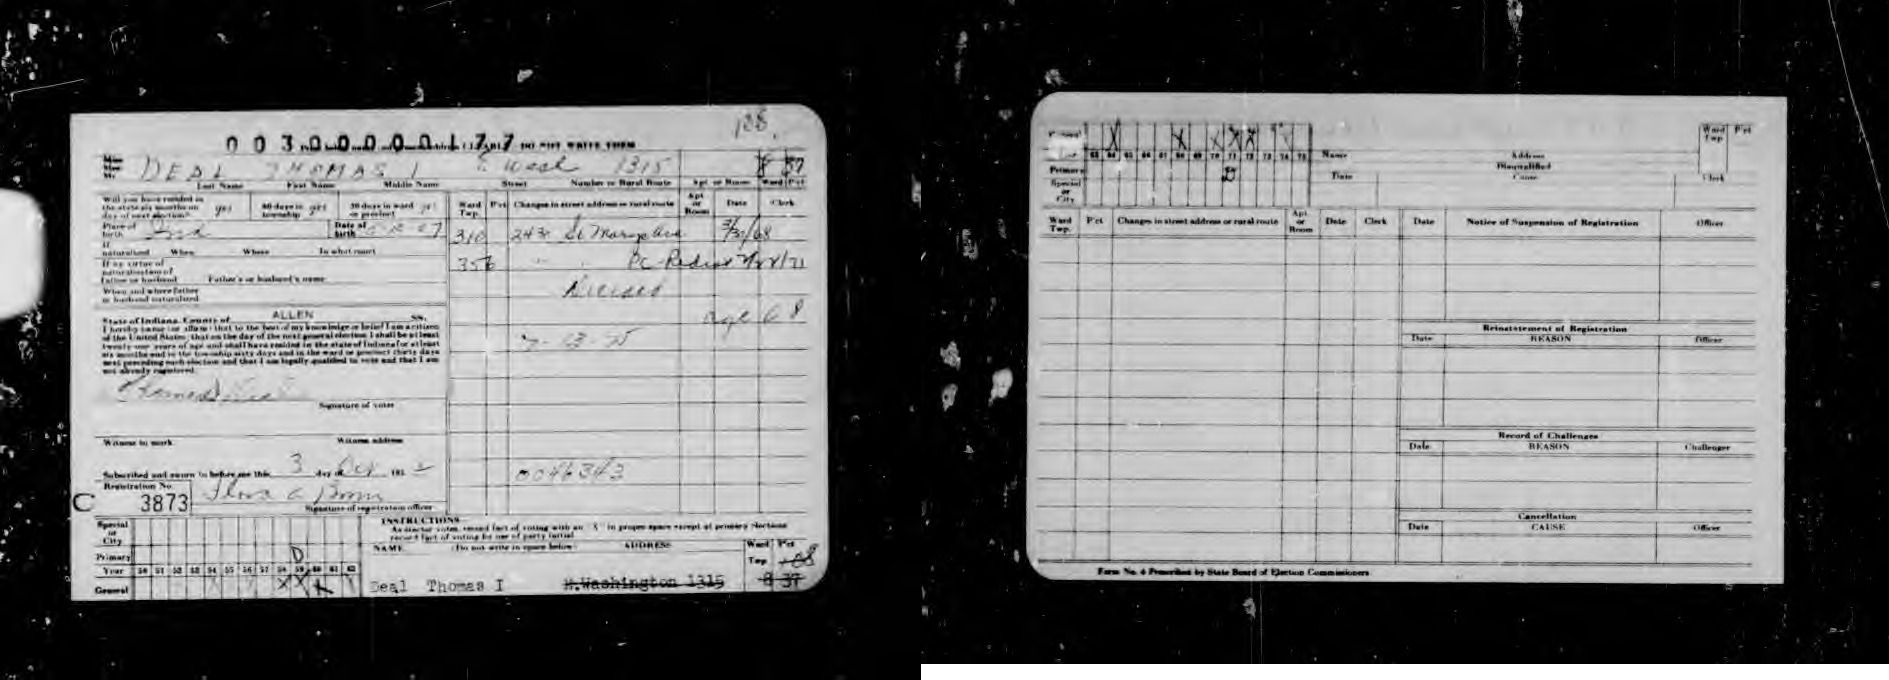 128
003000000177 DO NOT WRITE THEM
DEAL THOMAS I Wash 1315 8 37
Last Name First Name Middle Name Street Number or Rural Route Apt or Room Ward Pct
Will you have resided in the state six months on day of next election? yes 60 days in township yes 30 days in ward or precinct yes
Ward Twp. Pct Changes in street address or rural route Apt or Room Date Clerk
Place of birth Ind Date of birth 07
310 2431 St Marys Ave 3/31/68
If naturalized When Where In what court
356 " " Pc-Redist /71
If by virtue of naturalization of father or husband Father's or husband's name
When and where father or husband naturalized
Deceased
State of Indiana, County of ALLEN SS.
age 68
I hereby swear (or affirm) that to the best of my knowledge or belief I am a citizen
of the United States; that on the day of the next general election I shall be at least
twenty-one years of age and shall have resided in the state of Indiana for at least
six months and in the township sixty days and in the ward or precinct thirty days
next preceding such election and that I am legally qualified to vote and that I am
not already registered.
13-75
Thomas I Deal
Signature of voter
Witness to mark Witness address
Subscribed and sworn to before me this 3 day of 195
0046343
Registration No.
C 3873 Flora a
Signature of registration officer
INSTRUCTIONS
As elector votes, record fact of voting with an "X" in proper space except at primary elections
record fact of voting by use of party initial
Special or City
NAME (Do not write in space below) ADDRESS Ward Twp Pct
Primary D
Year 50 51 52 53 54 55 56 57 58 59 60 61 62
General X X X
Deal Thomas I W.Washington 1315 8 37
General X X X X X
Year 63 64 65 66 67 68 69 70 71 72 73 74 75
Primary D
Special or City
Name Address Ward Twp. Pct
Disqualified
Date Cause Clerk
Ward Twp. Pct Changes in street address or rural route Apt or Room Date Clerk
Date Notice of Suspension of Registration Officer
Reinstatement of Registration
Date REASON Officer
Record of Challenges
Date REASON Challenger
Cancellation
Date CAUSE Officer
Form No. 4 Prescribed by State Board of Election Commissioners